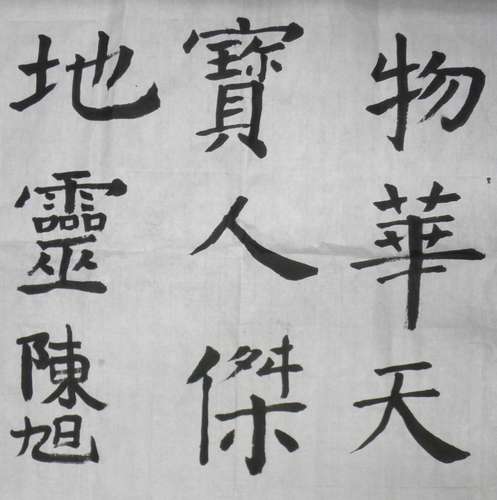 物華天
寶人傑
地靈陳旭